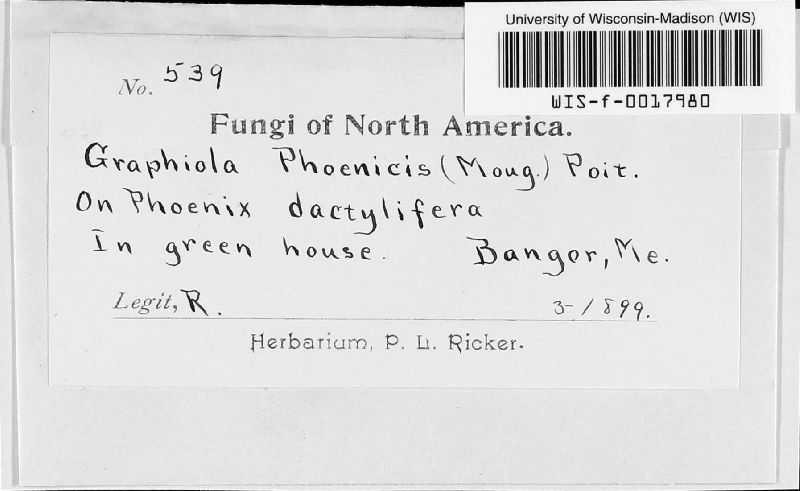 University of Wisconsin-Madison (WIS)
WIS-f-0017980
No. 539
Fungi of North America.
Graphiola Phoenicis (Moug.) Poit.
On Phoenix dactylifera
In green house. Bangor, Me.
Legit, R. 3-1899.
Herbarium, P. L. Ricker.